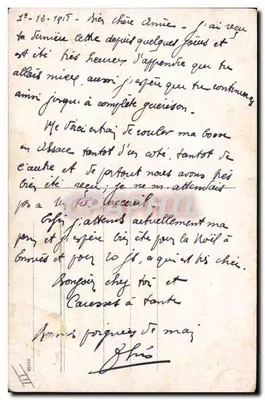 1er-12-1918 - Bien chère Amie - j'ai reçu
ta dernière lettre depuis quelques jours et
ai été très heureux d'apprendre que tu
allais mieux, aussi j'espère que tu continueras
ainsi jusqu'à complète guérison.
Me voici en train de rouler ma bosse
en Alsace tantôt d'un côté, tantôt de
l'autre et de partout nous avons très
bien été reçus; je ne m'attendais
pas à un tel accueil.
Enfin j'attends actuellement ma
perm et j'espère bien être pour la Noël à
et pour 20 js, à qui est très chic.
Bonjour chez toi et
Caresses à
Bonnes poignées de main